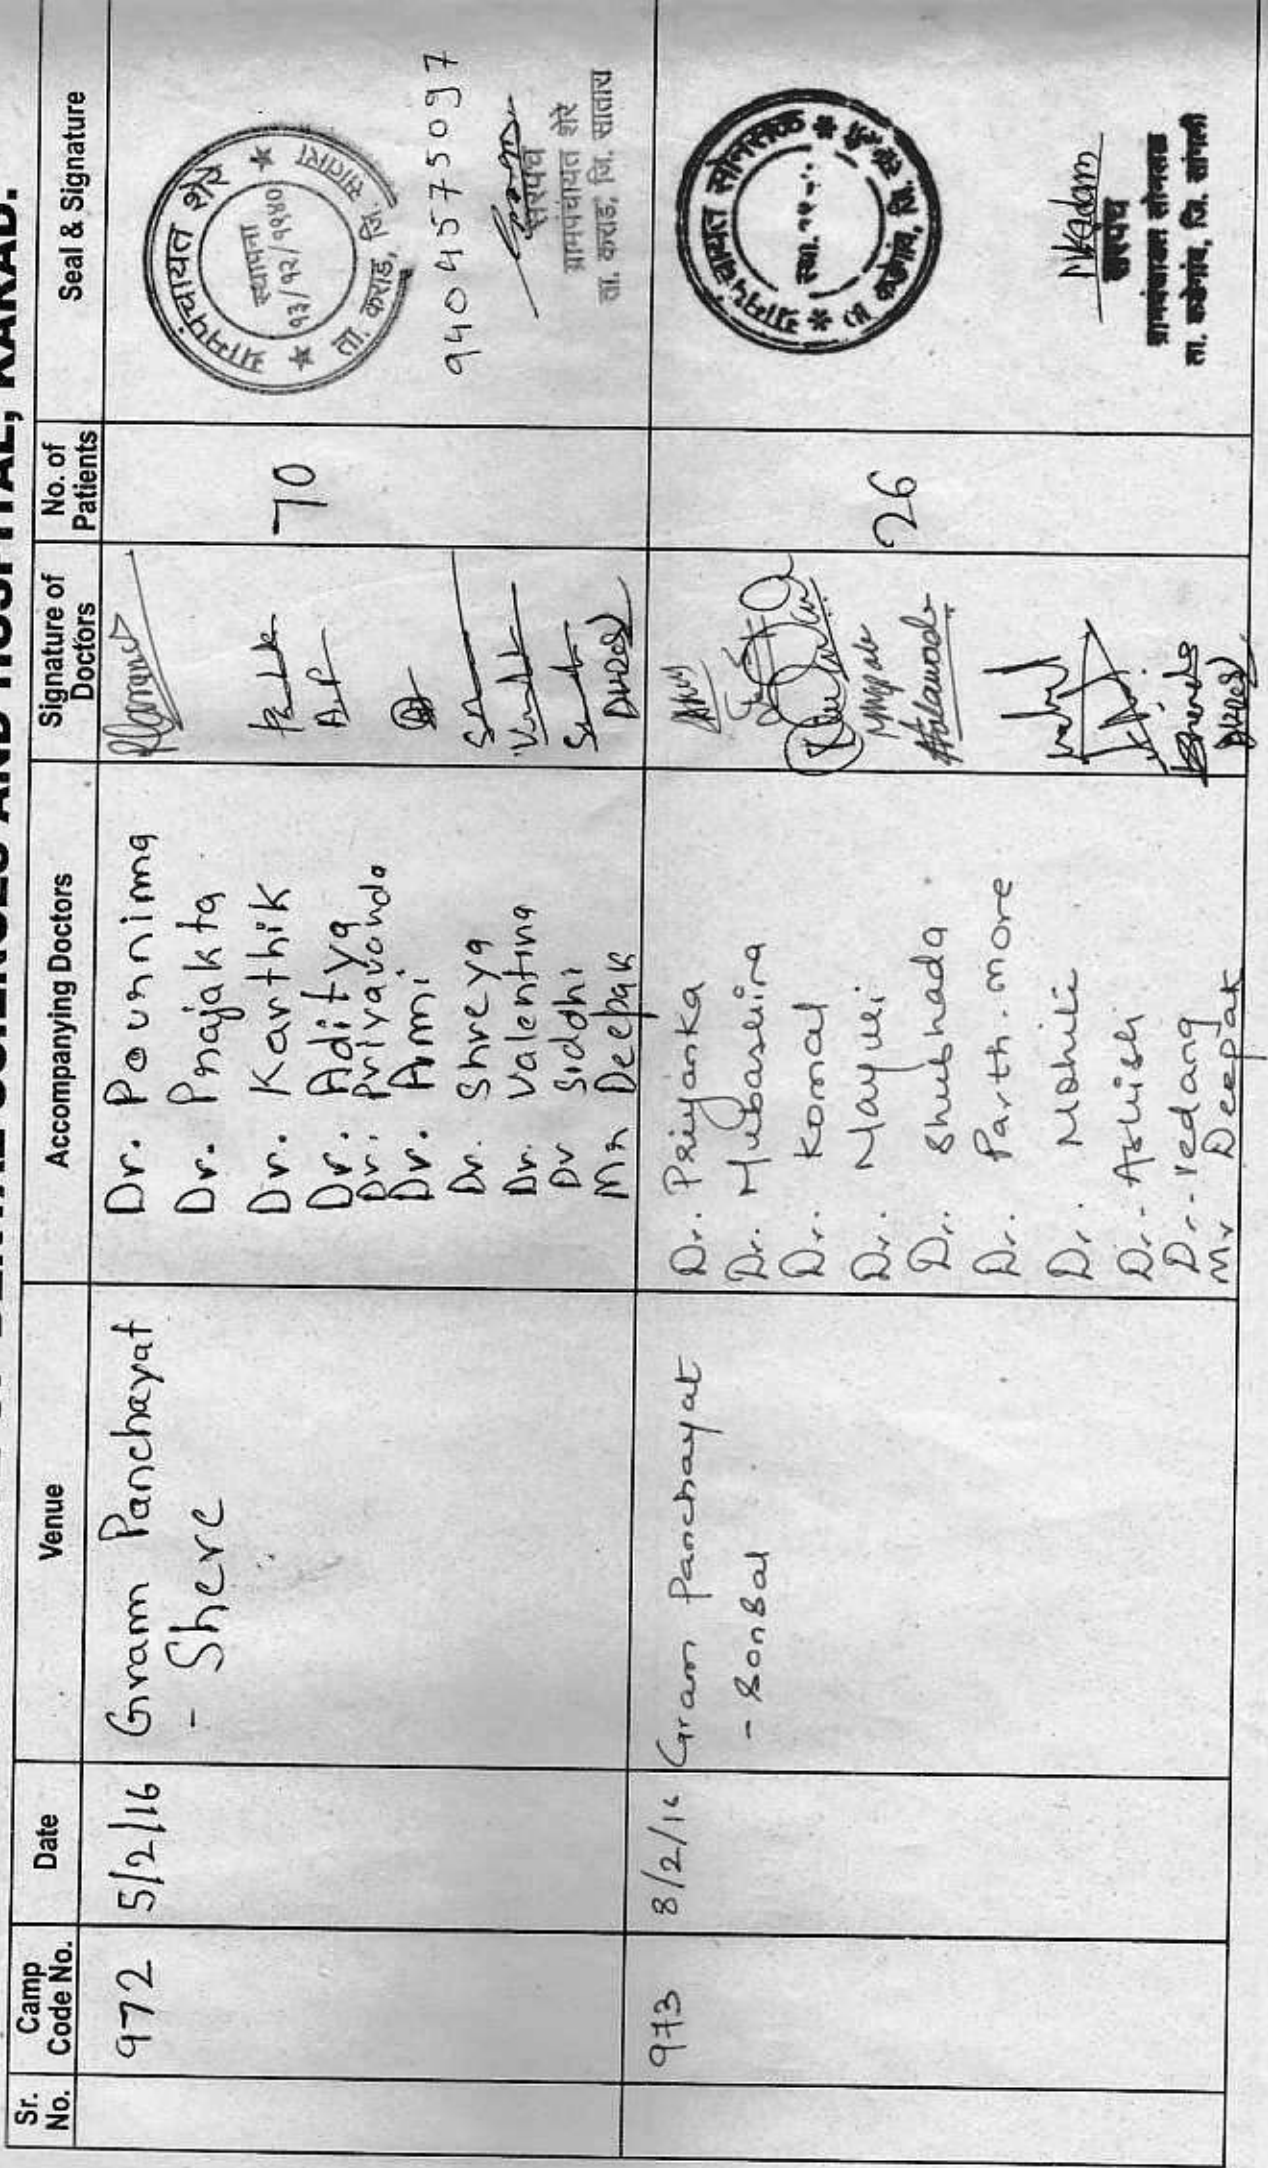 DENTAL SCIENCES AND HOSPITAL, KARAD.
Sr. No.
Camp Code No.
Date
Venue
Accompanying Doctors
Signature of Doctors
No. of Patients
Seal & Signature
972
5/2/16
Gram Panchayat
- Shere
Dr. Pournima
Dr. Prajakta
Dr. Karthik
Dr. Aditya
Dr. Priyavanda
Dr. Ami
Dr. Shreya
Dr. Valentina
Dr Siddhi
Mr Deepak
70
ग्रामपंचायत शेरे
स्थापना
१३/१२/१९४०
ता. कराड, जि. सातारा
9404575097
सरपंच
ग्रामपंचायत शेरे
ता. कराड, जि. सातारा
973
8/2/16
Gram Panchayat
- Sonsal
Dr. Priyanka
Dr. Mubashira
Dr. Komal
Dr. Mayuri
Dr. Shubhada
Dr. Parth. more
Dr. Mohili
Dr. Ashish
Dr. Vedang
Mr Deepak
26
ग्रामपंचायत सोनसळ
स्था.
ता. कडेगांव, जि.
MKadam
सरपंच
ग्रामपंचायत सोनसळ
ता. कडेगांव, जि. सांगली